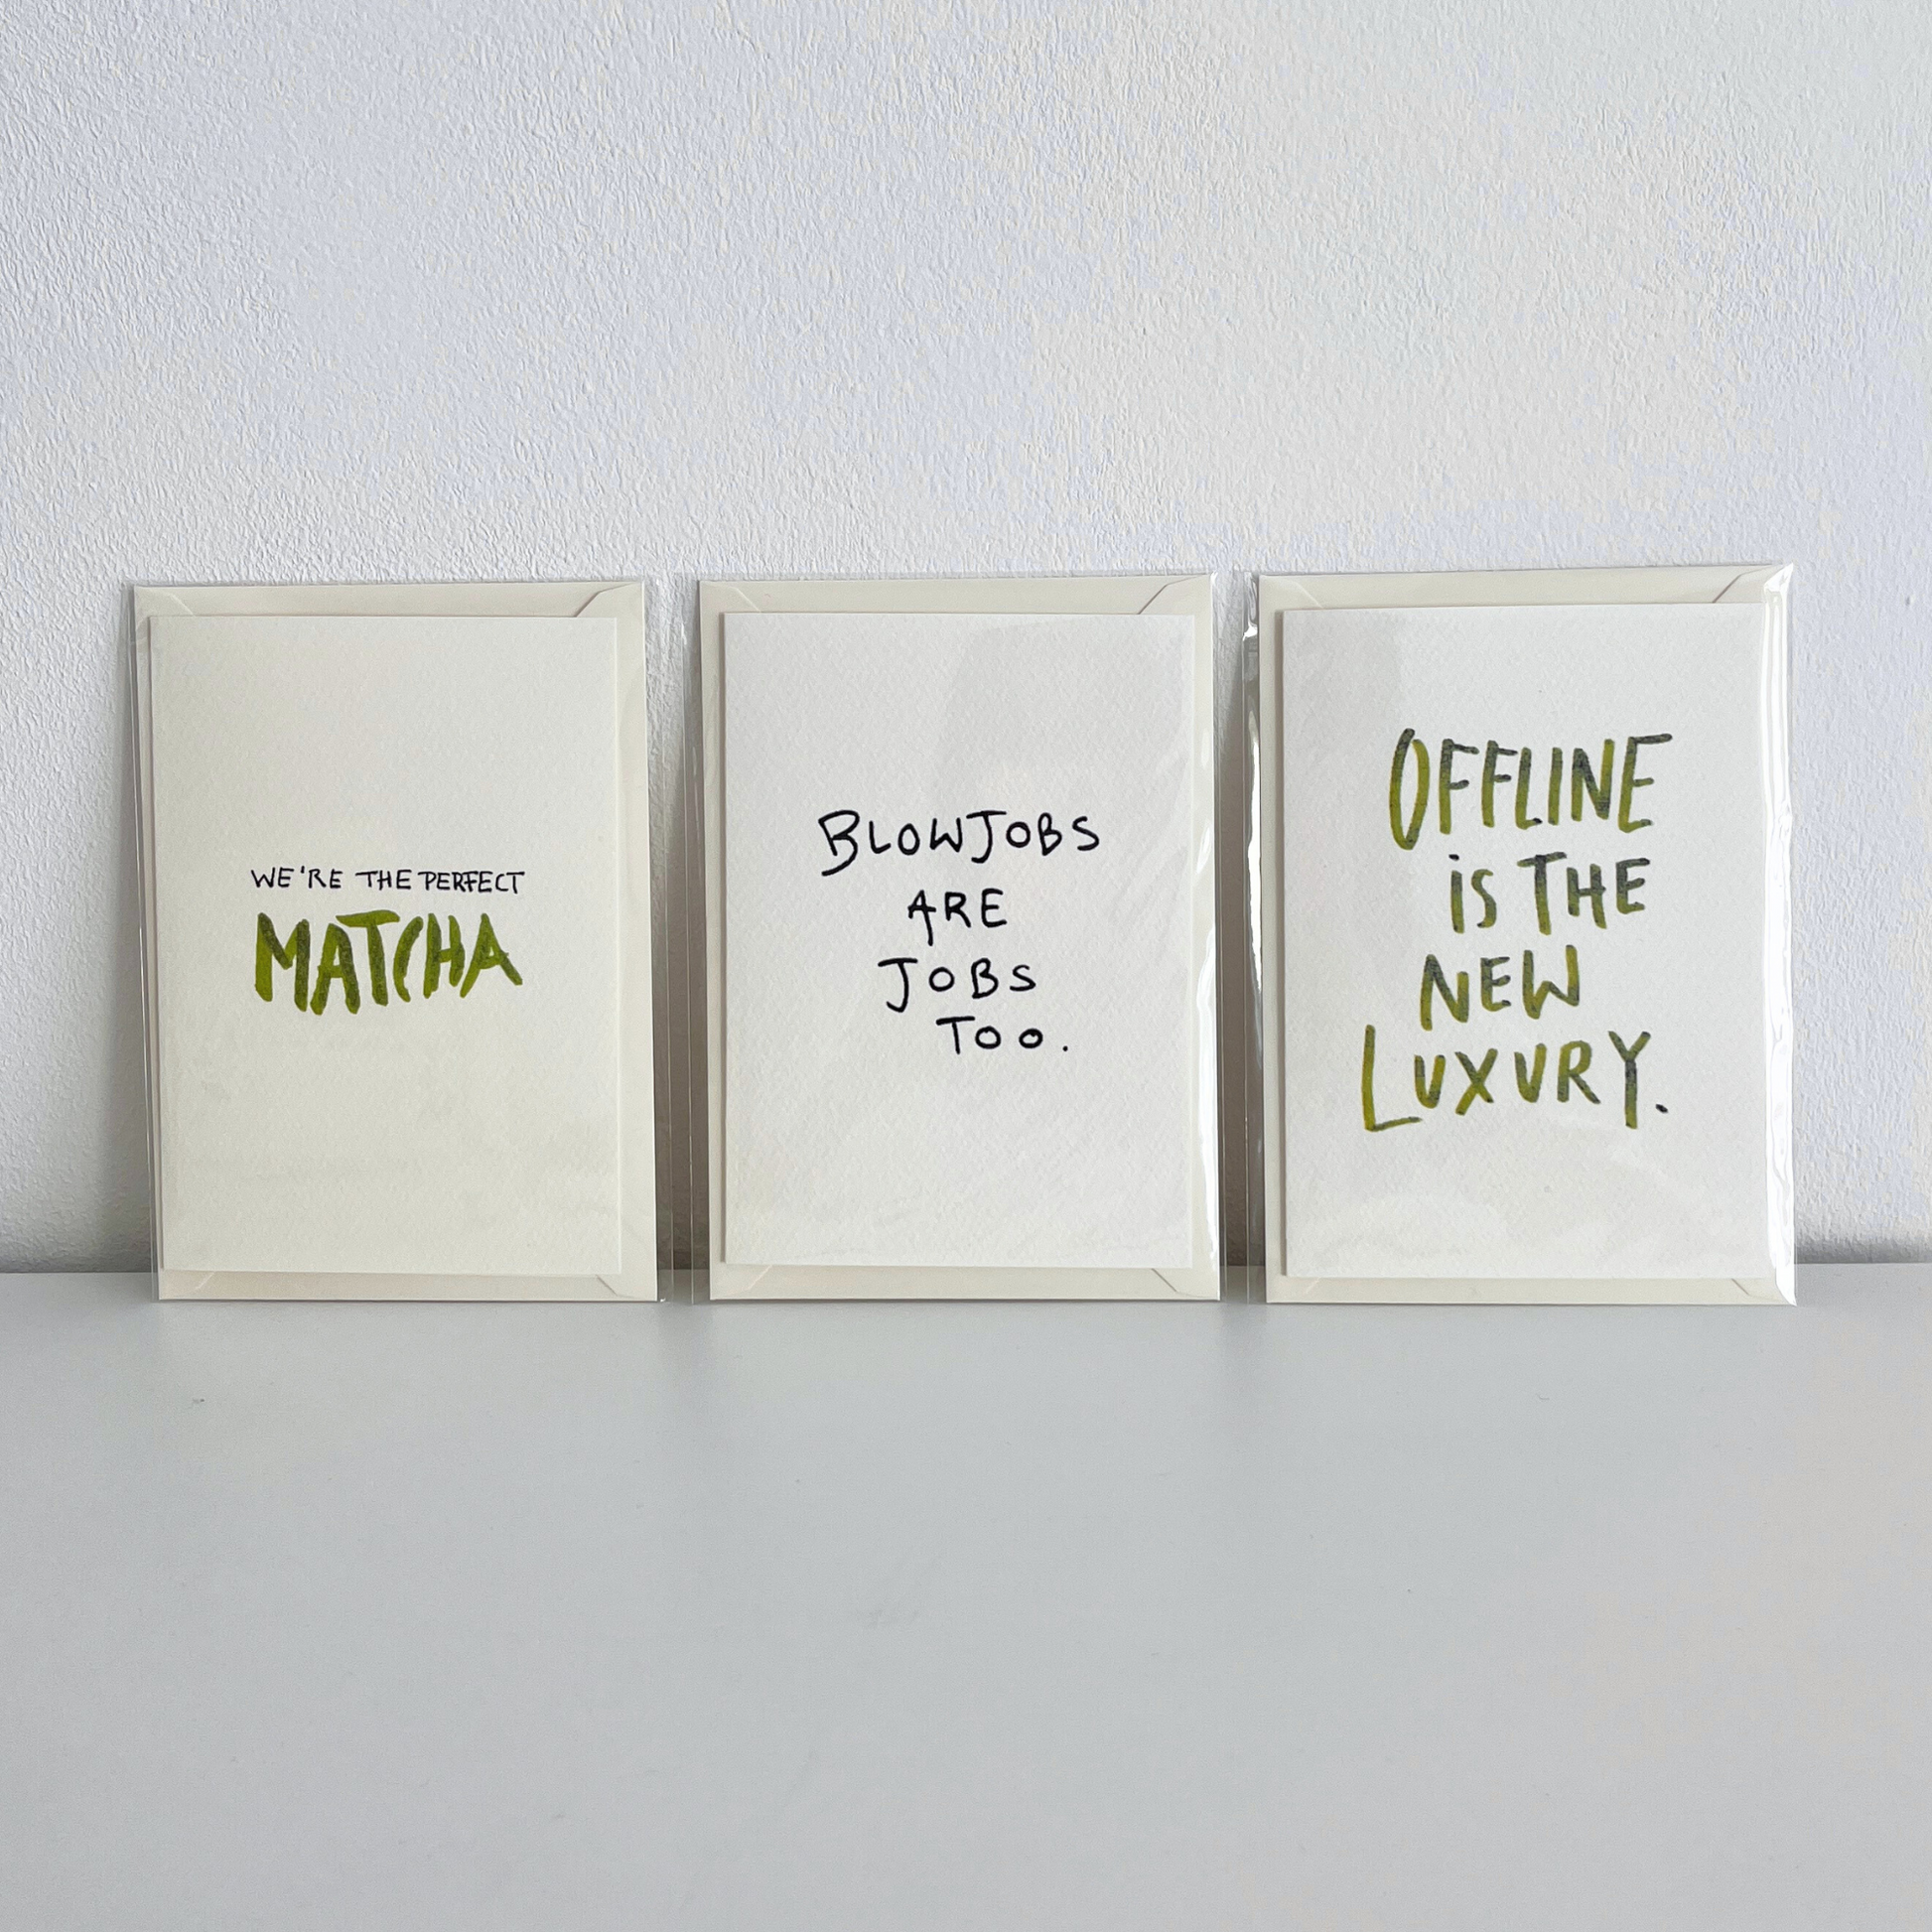 WE'RE THE PERFECT
MATCHA
BLOWJOBS
ARE
JOBS
TOO.
OFFLINE
iS THE
NEW
LUXURY.